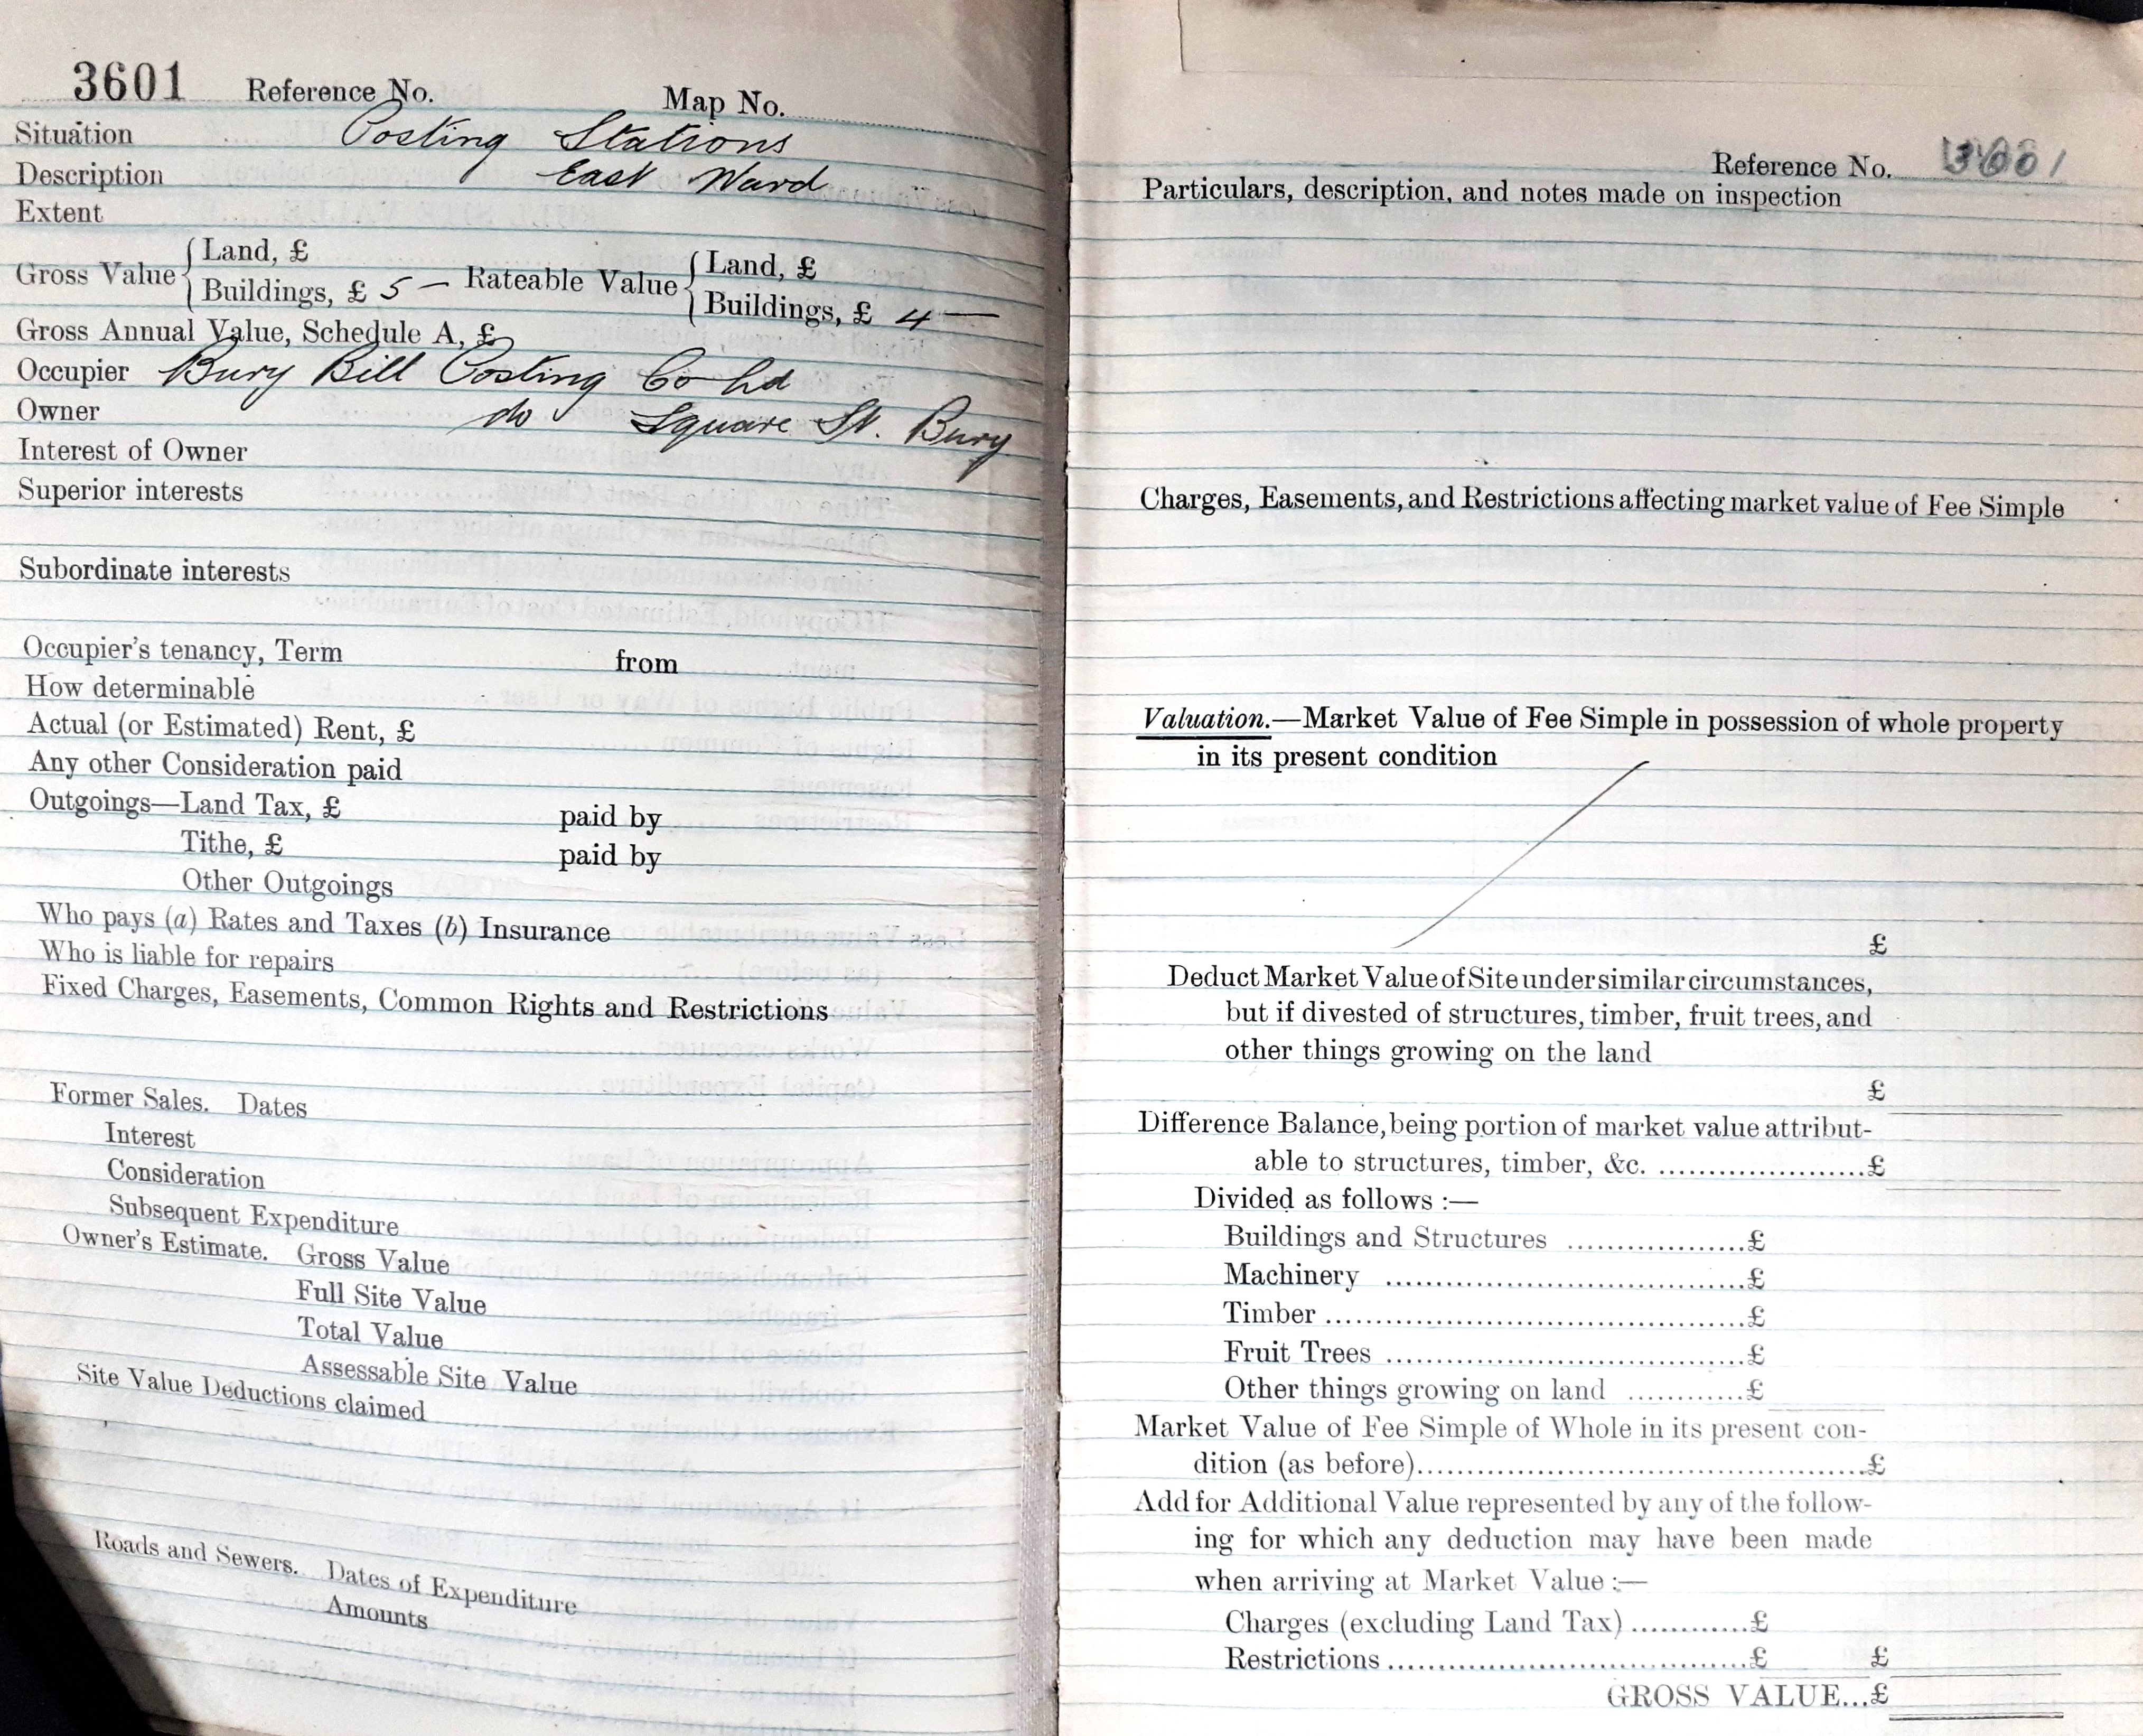 3601 Reference No. Map No.
Situation Posting Stations
Description East Ward
Extent
Gross Value { Land, £
Buildings, £ 5 — Rateable Value { Land, £
Buildings, £ 4 —
Gross Annual Value, Schedule A, £
Occupier Bury Bill Posting Co Ld
Owner do Square St. Bury
Interest of Owner
Superior interests
Subordinate interests
Occupier's tenancy, Term from
How determinable
Actual (or Estimated) Rent, £
Any other Consideration paid
Outgoings—Land Tax, £ paid by
Tithe, £ paid by
Other Outgoings
Who pays (a) Rates and Taxes (b) Insurance
Who is liable for repairs
Fixed Charges, Easements, Common Rights and Restrictions
Former Sales. Dates
Interest
Consideration
Subsequent Expenditure
Owner's Estimate. Gross Value
Full Site Value
Total Value
Assessable Site Value
Site Value Deductions claimed
Roads and Sewers. Dates of Expenditure
Amounts
Reference No. 3601
Particulars, description, and notes made on inspection
Charges, Easements, and Restrictions affecting market value of Fee Simple
Valuation.—Market Value of Fee Simple in possession of whole property
in its present condition
£
Deduct Market Value of Site under similar circumstances,
but if divested of structures, timber, fruit trees, and
other things growing on the land
£
Difference Balance, being portion of market value attribut-
able to structures, timber, &c. ......................£
Divided as follows :—
Buildings and Structures ..................£
Machinery ....................................£
Timber ..........................................£
Fruit Trees ....................................£
Other things growing on land ............£
Market Value of Fee Simple of Whole in its present con-
dition (as before)................................................£
Add for Additional Value represented by any of the follow-
ing for which any deduction may have been made
when arriving at Market Value :—
Charges (excluding Land Tax) ............£
Restrictions ....................................£ £
GROSS VALUE...£